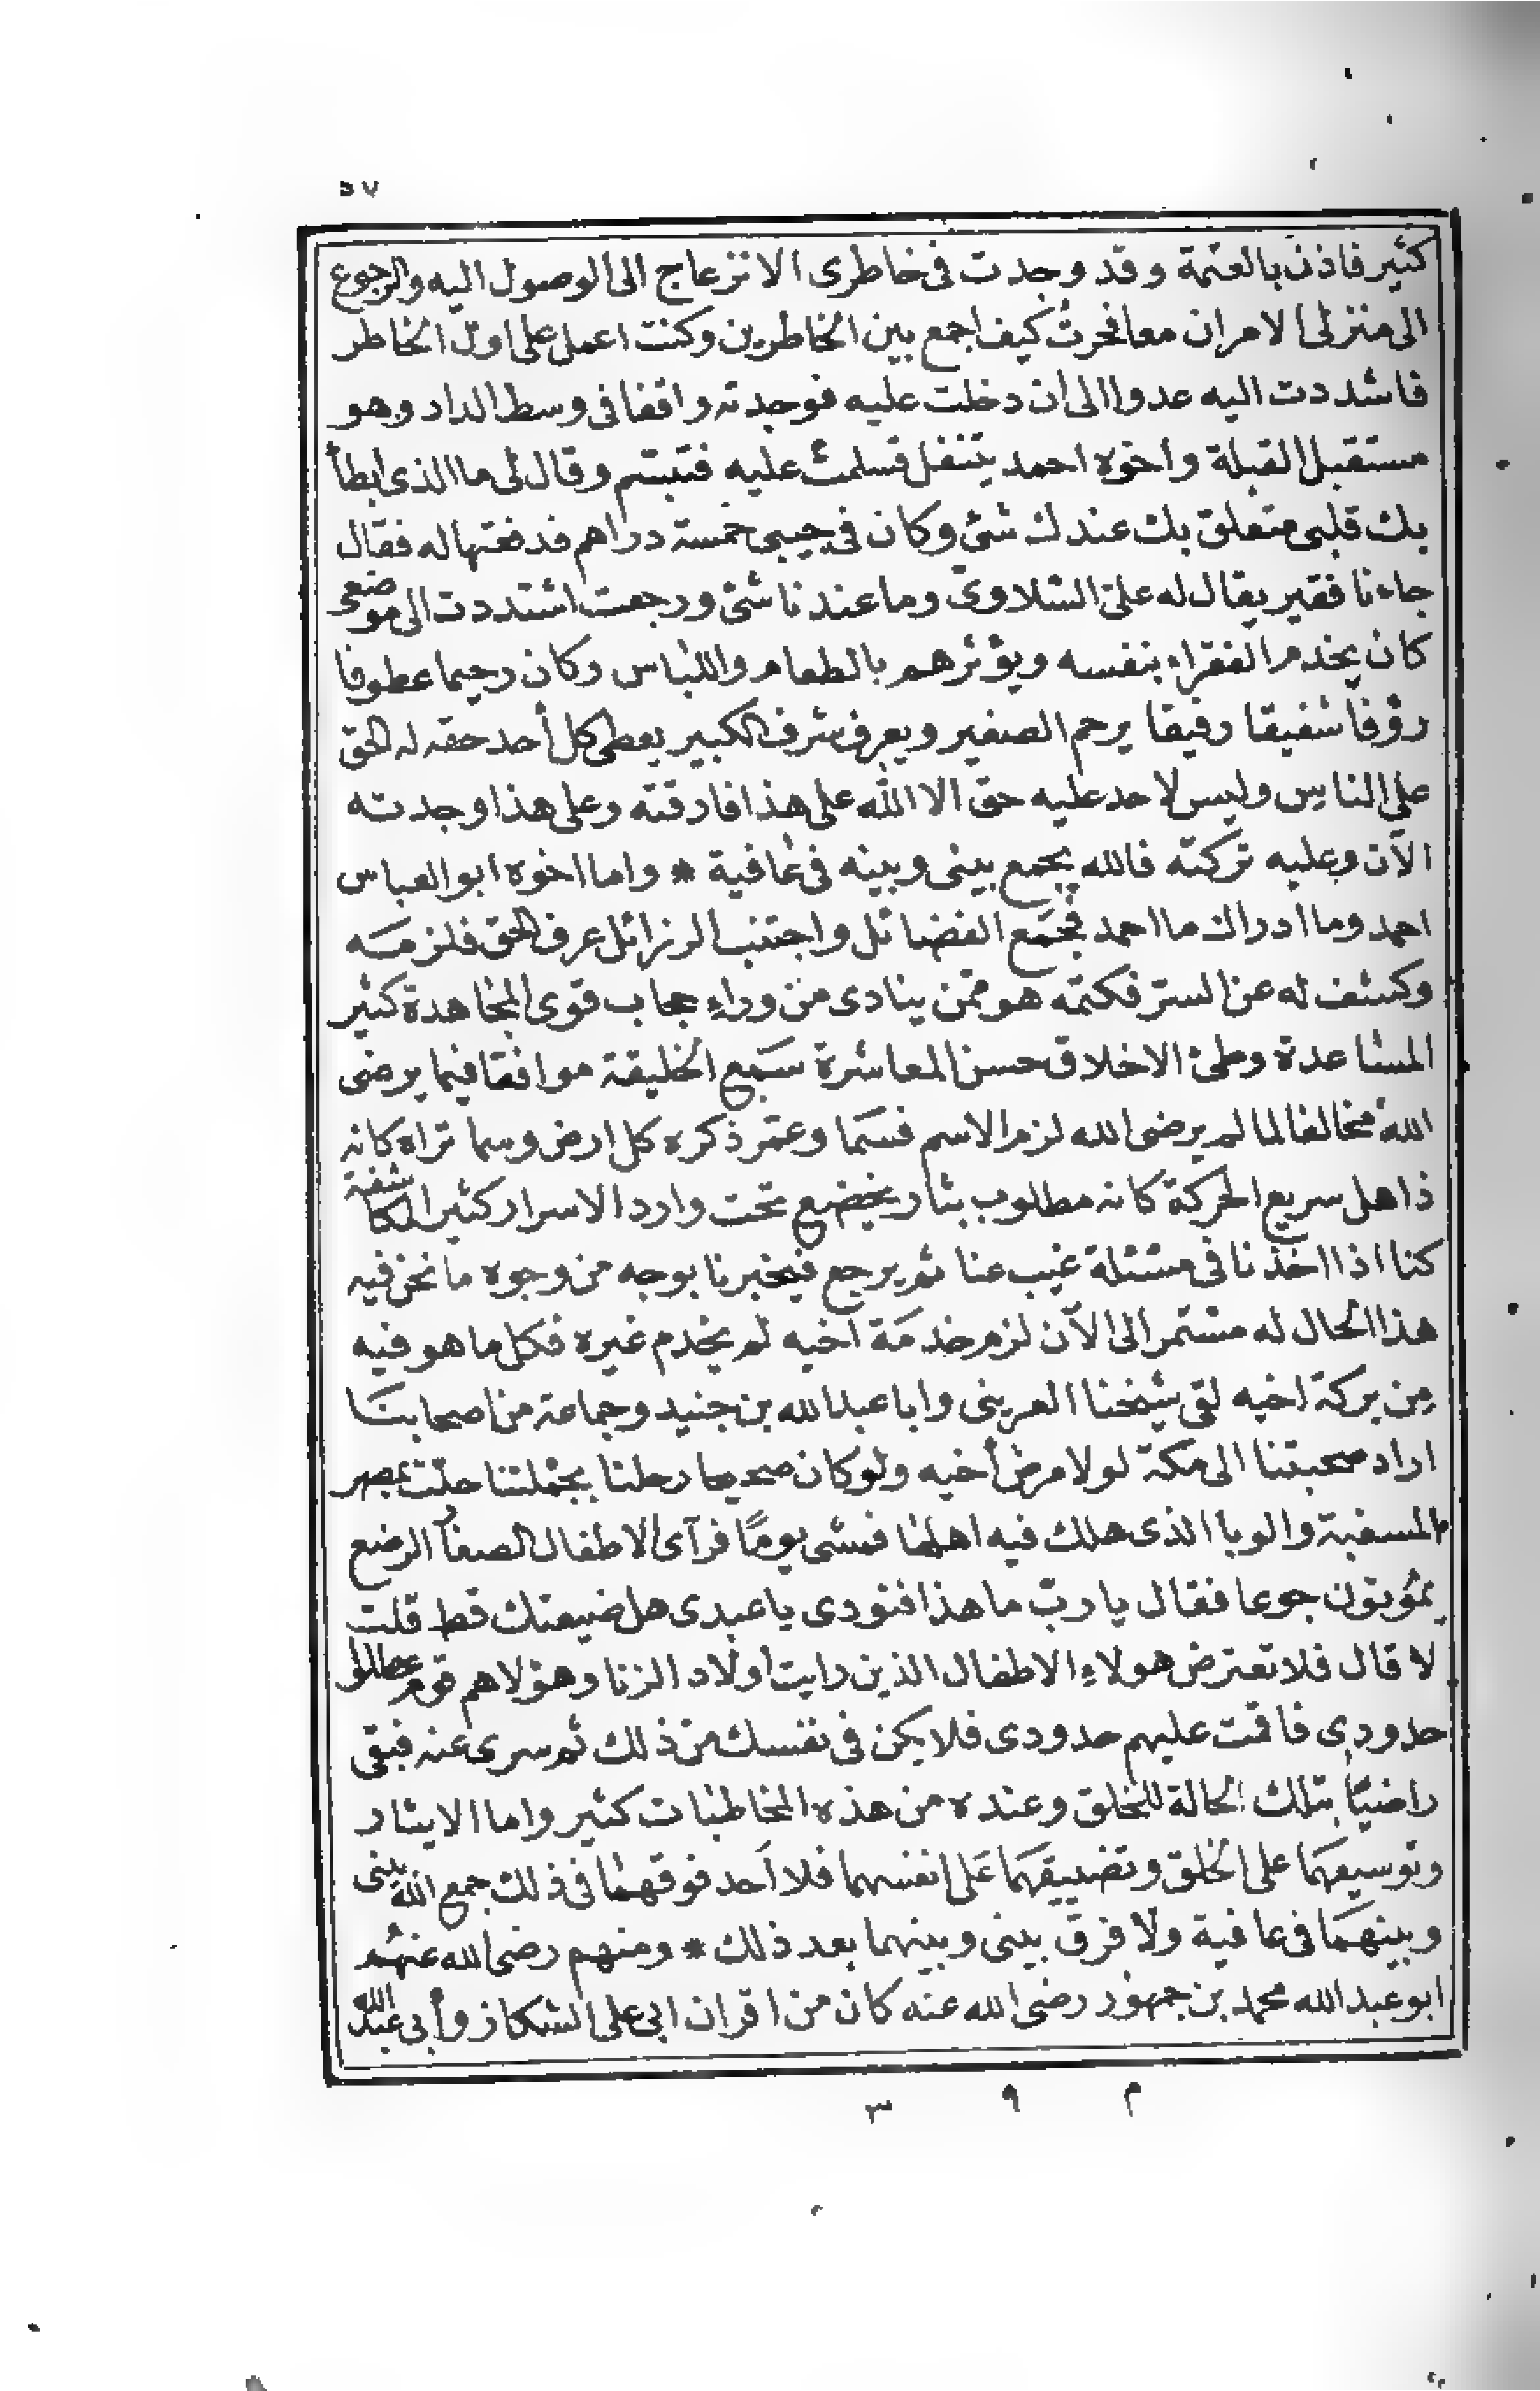 ٥٧
كثير فاذن بالعتمة وقد وجدت فى خاطرى الانزعاج الى الوصول اليه والرجوع
الى منزلى الامران معا فحرت كيف اجمع بين الخاطرين وكنت اعمل على اول الخاطر
فاشددت اليه عدوا الى أن دخلت عليه فوجدته واقفا فى وسط الدار وهو
مستقبل القبلة واخوه احمد يتنفل فسلمت عليه فتبسم وقال لى ما الذى ابطأ
بك قلبى متعلق بك عندك شئ وكان فى جيبى خمسة دراهم فدفعتها له فقال
جاءنا فقير يقال له على السلاوى وما عندنا شئ ورجعت اشتددت الى موضعى
كان يخدم الفقراء بنفسه ويؤثرهم بالطعام واللباس وكان رحيما عطوفا
رؤفا شفيقا رفيقا يرحم الصغير ويعرف شرف الكبير يعطى كل أحد حقه له الحق
على الناس وليس لاحد عليه حق الا الله على هذا فارقته وعلى هذا وجدته
الآن وعليه تركته فالله يجمع بينى وبينه فى عافية * واما اخوه ابو العباس
احمد وما أدراك ما احمد مجمع الفضائل واجتنب الرزائل عرف الحق فلزمه
وكشف له عن الستر فكتمه هو ممن ينادى من وراء حجاب قوى المجاهدة كثير
المساعدة وطئ الاخلاق حسن المعاشرة سميع الخليقة موافقا فيما يرضى
الله مخالفا لما لم يرضى الله لزم الاسم فسما وعمر ذكره كل ارض وسما تراه كانه
ذاهل سريع الحركة كانه مطلوب بثار يخضع تحت وارد الاسرار كثير المكاشفة
كنا اذا اخذنا فى مسئلة غيب عنا ثم يرجع فيخبرنا بوجه من وجوه ما نحن فيه
هذا الحال له مستمر الى الآن لزم خدمة اخيه لم يخدم غيره فكل ما هو فيه
من بركة اخيه لقى شيخنا العرينى وابا عبد الله بن جنيد وجماعة من اصحابنا
اراد صحبتنا الى مكة لولا مرض أخيه ولو كان صحيحا رحلنا بجملتنا حلت بمصر
المسغبة والوبا الذى هلك فيه اهلها فمشى يوما فرآى الاطفال الصغار الرضع
يموتون جوعا فقال يا رب ما هذا فنودى يا عبدى هل ضيعتك قط قلت
لا قال فلا تعترض هولاء الاطفال الذين رايت اولاد الزنا وهؤلاهم قوم عطلوا
حدودى فاقمت عليهم حدودى فلا يكن فى نفسك من ذلك ثم سرى عنه فبقى
راضيا بتلك الحالة للخلق وعنده من هذه المخاطبات كثير واما الايثار
وتوسيعهما على الخلق وتضييقهما على انفسهما فلا أحد فوقهما فى ذلك جمع الله بينى
وبينهما فى عافية ولا فرق بينى وبينهما بعد ذلك * ومنهم رضى الله عنهم
ابو عبد الله محمد بن جمهور رضى الله عنه كان من اقران ابى على الشكاز وأبى عبد الله
م ٩ ٣